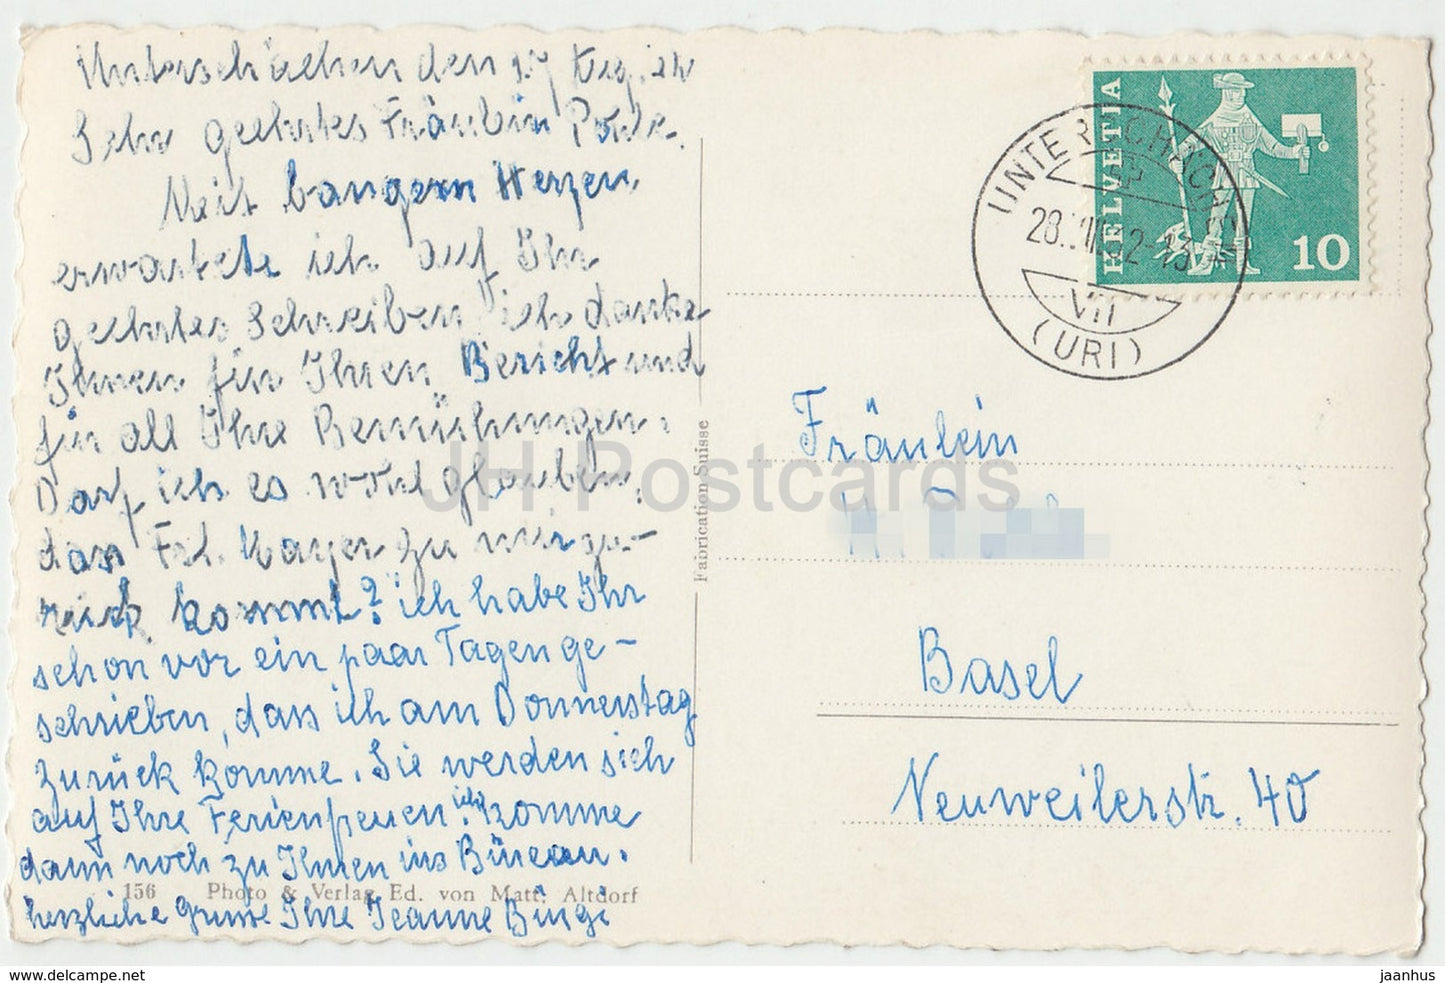 Unterschächen den 27 Aug. 62
Sehr geehrtes Fräulein
Mit bangem Herzen,
erwartete ich auf Ihr
geehrtes Schreiben ich danke
Ihnen für Ihren Bericht und
für all Ihre Bemühungen.
Darf ich es wohl glauben,
dass Frl. Mayer zu mir zu-
rück kommt? ich habe Ihr
schon vor ein paar Tagen ge-
schrieben, dass ich am Donnerstag
zurück komme. Sie werden sich
auf Ihre Ferien freuen ich komme
dann noch zu Ihnen ins Büreau.
herzliche Grüsse Ihre Jeanne Bürgi
156 Photo & Verlag Ed. von Matt, Altdorf
Fabrication Suisse
HELVETIA
10
UNTERSCHÄCHEN
VII
(URI)
Fräulein
Basel
Neuweilerstr. 40
JH Postcards
www.delcampe.net
jaanhus